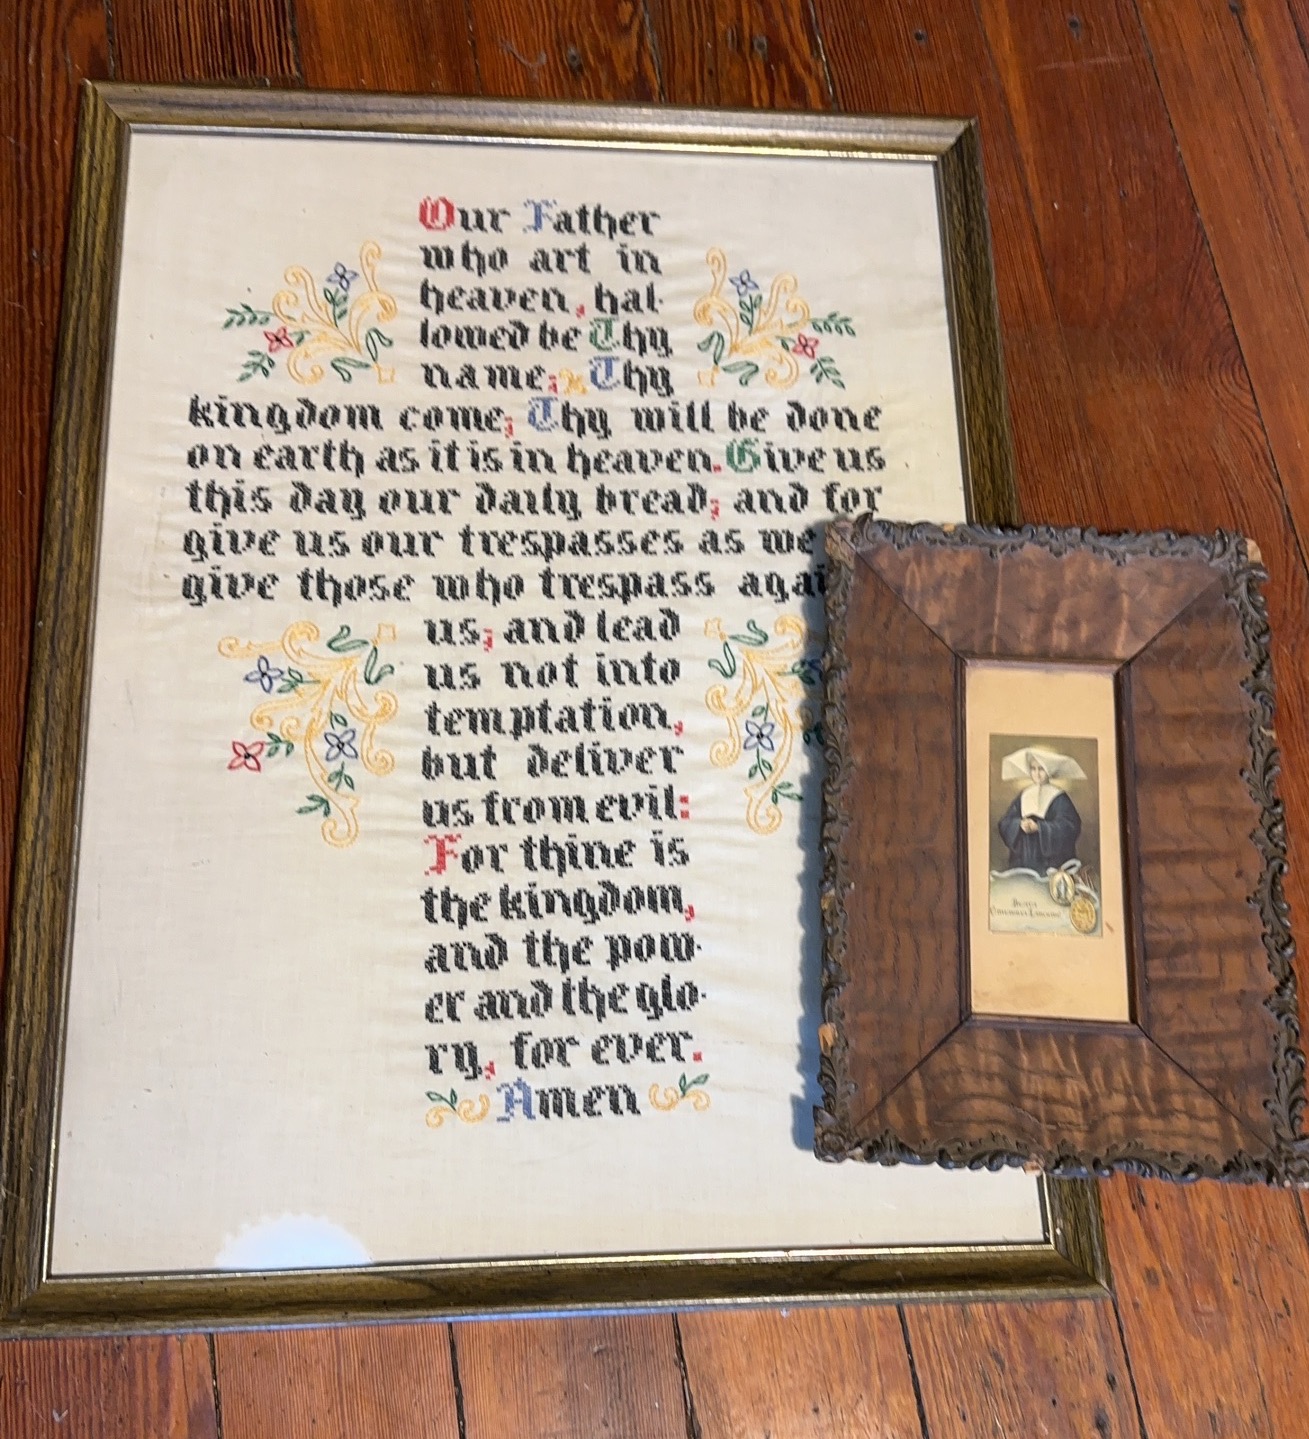 Our Father
who art in
heaven, hal-
lowed be Thy
name; Thy
kingdom come; Thy will be done
on earth as it is in heaven. Give us
this day our daily bread; and for
give us our trespasses as we
give those who trespass agai
us; and lead
us not into
temptation,
but deliver
us from evil:
For thine is
the kingdom,
and the pow-
er and the glo-
ry, for ever.
Amen